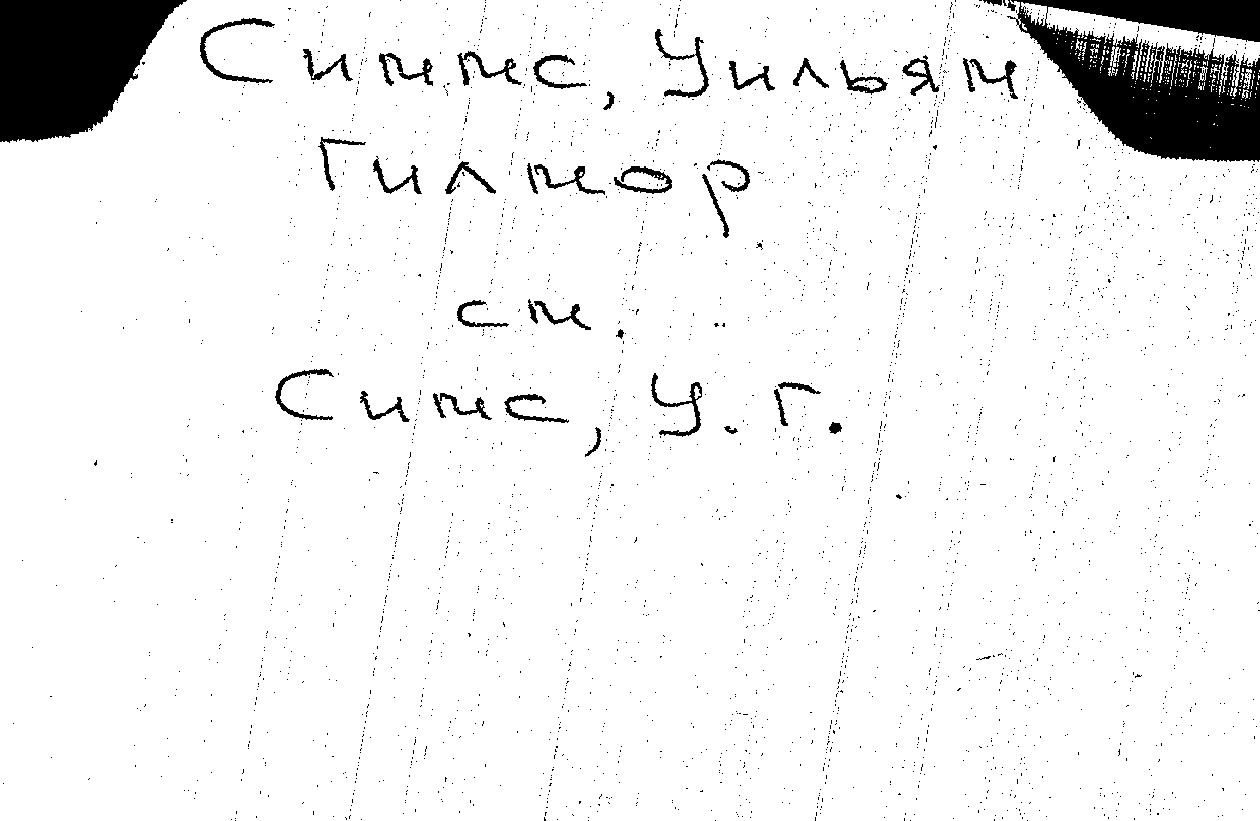 Симмс, Уильям
Гилмор
см.
Симс, У. Г.